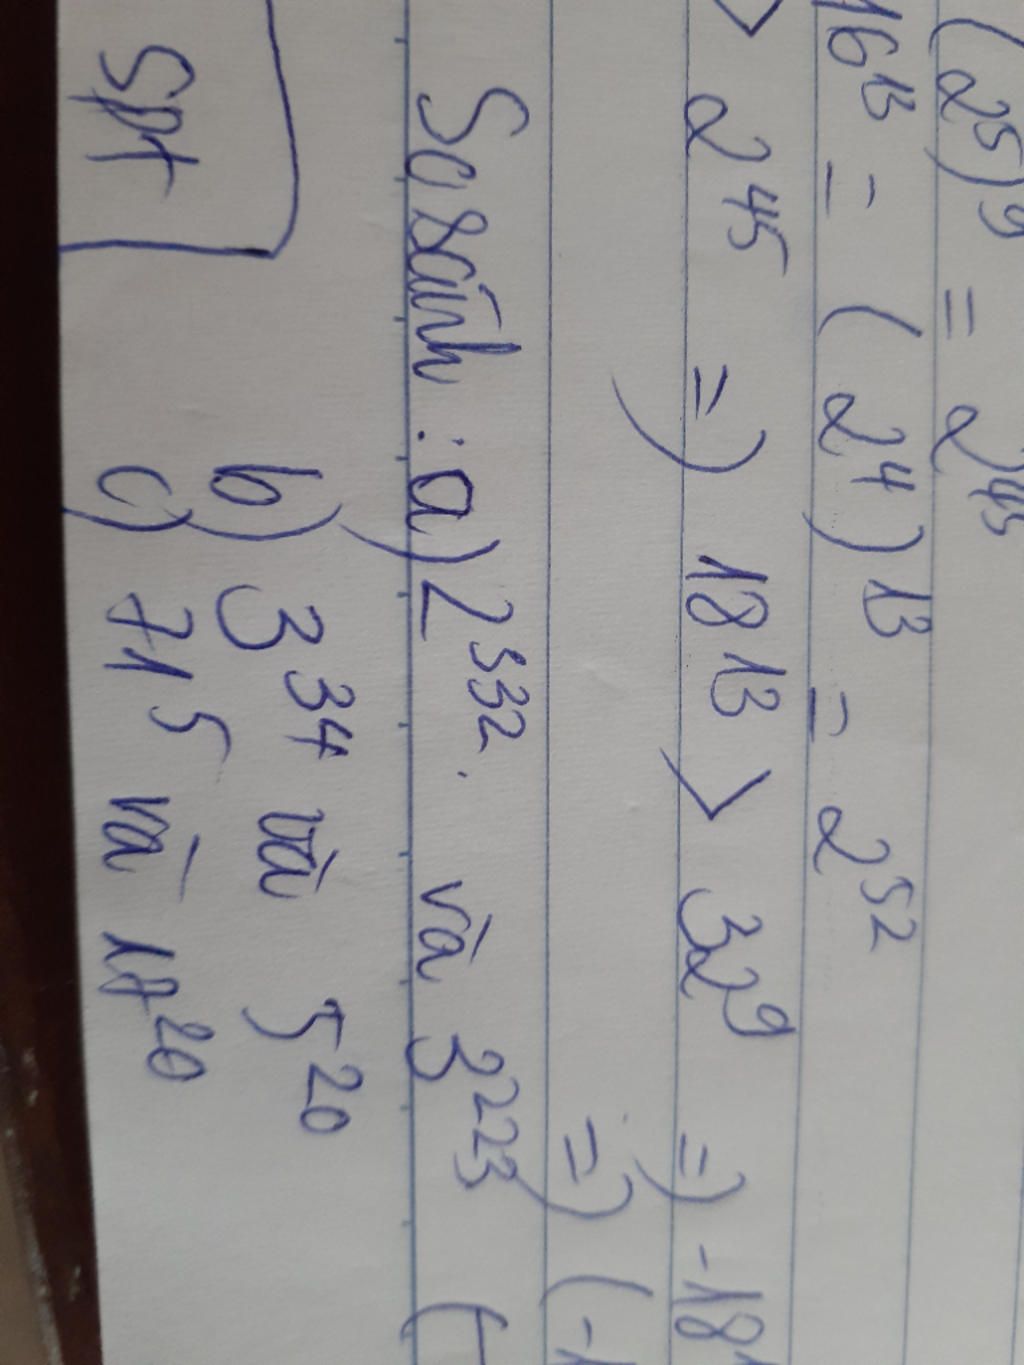 (2⁵)⁹ = 2⁴⁵
16¹³ = (2⁴)¹³ = 2⁵²
> 2⁴⁵ => 18¹³ > 32⁹ => -18¹
=> (-1
So sánh : a) 2³³². và 3²²³ (
b) 3³⁴ và 5²⁰
c) 71⁵ và 18²⁰
Spt